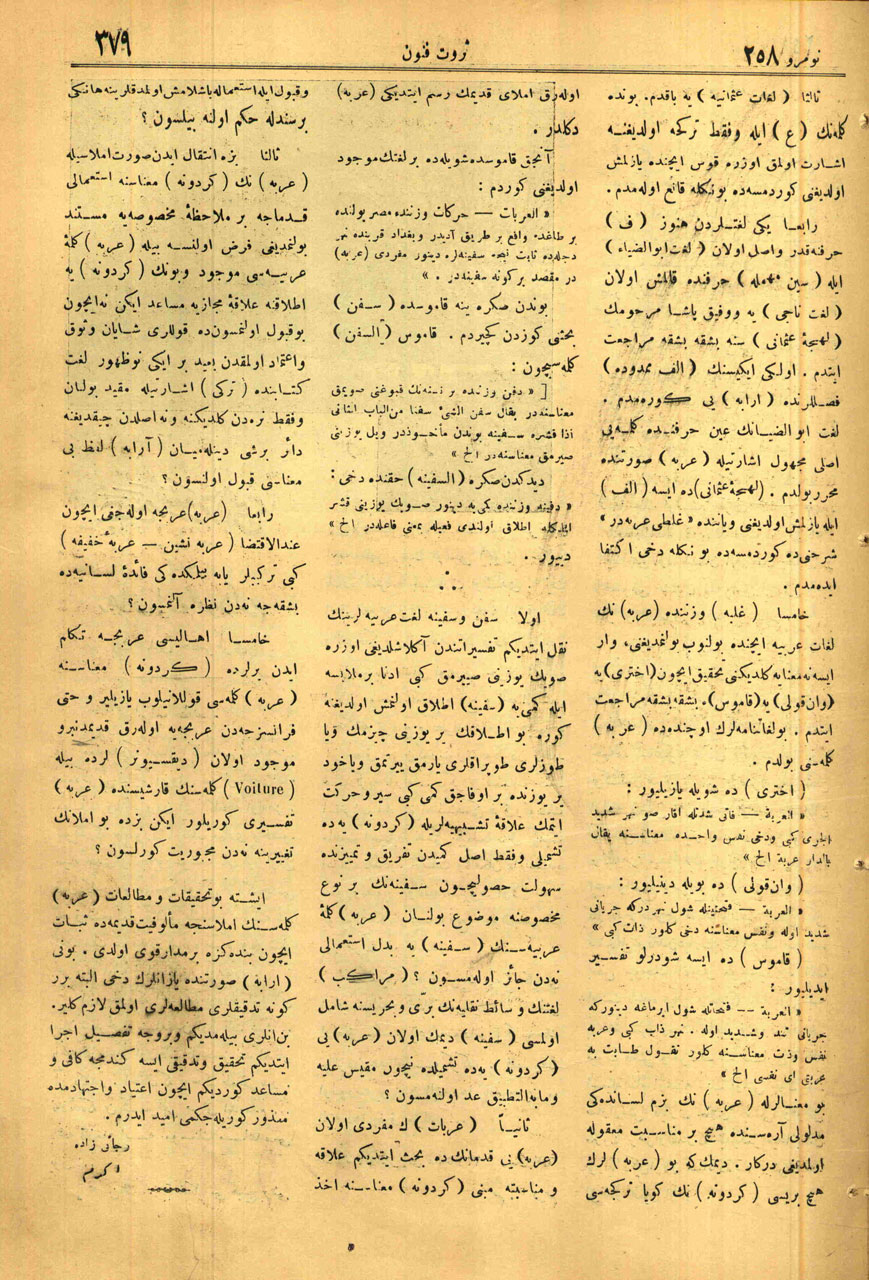 نومرو ٢٥٨
ثروت فنون
٣٧٩
ثالثا ( لغات عثمانیه ) یه باقدم . بونده
كلمه‌نك ( ع ) ایله وفقط تركجه اولدیغنه
اشارت اولمق اوزره قوس ایچنده یازلمش
اولدیغنی كوردمسه‌ده بونكله قانع اوله‌مدم .
رابعا یكی لغتلردن هنوز ( ف )
حرفنه‌قدر واصل اولان ( لغت ابوالضیاء )
ایله ( سین مهمله ) حرفنده قالمش اولان
( لغت ناجی ) یه ووفیق پاشا مرحومك
( لهجۀ عثمانی ) سنه بشقه بشقه مراجعت
ایتدم . اولكی ایكیسنك ( الف ممدوده )
فصللرنده ( ارابه ) یی كوره‌مدم .
لغت ابوالضیانك عین حرفنده كلمه‌یی
اصلی مجهول اشارتیله ( عربه ) صورتنده
محرر بولدم . (لهجۀ عثمانی) ده ایسه (الف)
ایله یازلمش اولدیغنی ویاننده « غلطی عربه‌در »
شرحنی‌ده كوردمسه‌ده بونكله دخی اكتفا
ایده‌مدم .
خامسا ( غلبه ) وزننده (عربه) نك
لغات عربیه ایچنده بولنوب بولنمدیغنی، وار
ایسه نه معنایه كلدیكنی تحقیق ایچون (اختری) یه
(وان‌قولی) یه (قاموس) ه بشقه بشقه مراجعت
ایتدم . بولغاتنامه‌لرك اوچنده‌ده ( عربه )
كلمه‌نی بولدم .
( اختری ) ده شویله یازیلیور :
« العربة — فاتی شدتله آقار صو نهر شدید
الجاری كبی ودخی نفس واحده معناسنه یقال
بالدار عربة الخ »
( وان‌قولی ) ده بویله دینیلیور :
« العربة — فتحتینله شول نهردركه جریانی
شدید اوله ونفس معناسنه دخی كلور ذات كبی »
( قاموس ) ده ایسه شودرلو تفسیر
ایدیلیور :
« العربة — فتحاتله شول ایرماغه دینوركه
جریانی تند وشدید اوله . نهر ذاب كبی وعربه
نفس وذت معناسنه كلور تقول طابت به
عربتی ای نفسی الخ »
بو معنالرله ( عربه ) نك بزم لسانده‌كی
مدلولی آره‌سنده هیچ بر مناسبت معقوله
اولمدیغی دركار . دیمك كه بو ( عربه ) لرك
هیچ بریسی ( كردونه ) نك كویا تركجه‌سی
اوله‌رق املای قدیمك رسم ایتدیكی (عربه)
دكلدر .
آنجق قاموسده شویله‌ده بر لغتك موجود
اولدیغنی كوردم :
« العربات — حركات وزننده مصر یولنده
بر طاغده واقع بر طریق آدیدر وبغداد قربنده نهر
دجله‌ده ثابت سفینه‌لره دینور مفردی (عربه)
در مقصد بركونه سفینه‌در . »
بوندن صكره ینه قاموسده ( سفن )
بحثنی كوزدن كچیردم . قاموس ( السفن )
كلمه‌سیچون :
[ « دفن وزننده بر نسنه‌نك قبوغنی صویمق
معناسنه‌در یقال سفن الشیٔ سفنا من‌الباب الثانی
اذا قشره سفینه بوندن مأخوذدر ویل یوزینی
صیرمق معناسنه‌در الخ »
دیدكدن صكره (السفینه ) حقنده دخی :
« دفینه وزننده كمی‌یه دینور صویك یوزینی قشر
ایلدكله اطلاق اولندی فعیله بمعنی فاعله‌در الخ »
دییور .
اولا سفن وسفینه لغت عربیه لرینك
نقل ایتدیكم تفسیراتندن آكلاشلدیغی اوزره
صویك یوزینی صییرمق كبی ادنا بر ملابسه
ایله كمی‌یه ( سفینه ) اطلاق اولنمش اولدیغنه
كوره بو اطلاقك یر یوزینی چیزمك ویا
طوزلری طوپراقلری یارمق ییرتمق ویاخود
یر یوزنده بر اوفاجق كمی كبی سیر وحركت
ایتمك علاقۀ تشبیهیه‌لریله ( كردونه ) یه‌ده
تشمیلی وفقط اصل كمیدن تفریق و تمییزنده
سهولت حصولیچون سفینه‌نك بر نوع
مخصوصنه موضوع بولنان ( عربه ) كلمۀ
عربیه‌سنك ( سفینه ) یه بدل استعمالی
نه‌دن جائز اوله‌مسون ؟ ( مراكب )
لغتنك وسائط نقلیه‌نك بری و بحریسنه شامل
اولمسی ( سفینه ) دیمك اولان (عربه) یی
( كردونه ) یه‌ده تشمیلده نیچون مقیس علیه
ومابه‌التطبیق عد اولنه‌مسون ؟
ثانیاً ( عربات ) ك مفردی اولان
(عربه) یی قدمانك‌ده بحث ایتدیكم علاقه
ومناسبته مبنی ( كردونه ) معناسنه اخذ
وقبول ایله استعماله باشلامش اولمدقلرینه هانكی
برسندله حكم اولنه بیلسون ؟
ثالثا بزه انتقال ایدن صورت املاسیله
( عربه ) نك ( كردونه ) معناسنه استعمالی
قدماجه بر ملاحظۀ مخصوصه‌یه مستند
بولنمدیغی فرض اولنسه بیله ( عربه ) كلمۀ
عربیه‌سی موجود وبونك ( كردونه ) یه
اطلاقنه علاقۀ مجازیه مساعد ایكن نه‌ایچون
بوقبول اولنمسون‌ده قوللری شایان وثوق
واعتماد اولمقدن بعید بر ایكی نوظهور لغت
كتابنده ( تركی ) اشارتیله مقید بولنان
وفقط نره‌دن كلدیكنه ونه اصلدن چیقدیغنه
دائر برشی دینله‌میان ( آرابه ) لفظ بی
معناسنی قبول اولنسون ؟
رابعا (عربه) عربجه اوله‌جغی ایچون
عندالاقتضا ( عربه نشین — عربۀ خفیفه )
كبی تركیبلر یاپه بیلمكده‌كی فائدۀ لسانیه‌ده
بشقه‌جه نه‌دن نظره آلنمسون ؟
خامسا اهالیسی عربجه تكلم
ایدن یرلرده ( كردونه ) معناسنه
( عربه ) كلمه‌سی قوللانیلوب یازیلیر و حتی
فرانسزجه‌دن عربجه‌یه اوله‌رق قدیمدنبرو
موجود اولان ( دیقسیونر ) لرده بیله
( Voiture ) كلمه‌سنك قارشیسنده ( عربه )
تفسیری كوریلور ایكن بزده بو املانك
تغییرینه نه‌دن مجبوریت كورلسون ؟
ایشته بوتحقیقات و مطالعات ( عربه )
كلمه‌سنك املاسنجه مألوفیت قدیمه‌ده ثبات
ایچون بنده‌كزه برمدار قوی اولدی . بونی
( ارابه ) صورتنده یازانلرك دخی البته برر
كونه تدقیقلری مطالعه‌لری اولمق لازم كلیر.
بن‌انلری بیله‌مدیكم وبروجه تفصیل اجرا
ایتدیكم تحقیق وتدقیقی ایسه كندمجه كافی و
مساعد كوردیكم ایچون اعتیاد واجتهادمده
معذور كوریله‌جكمی امید ایدرم .
رجائی زاده
اكرم